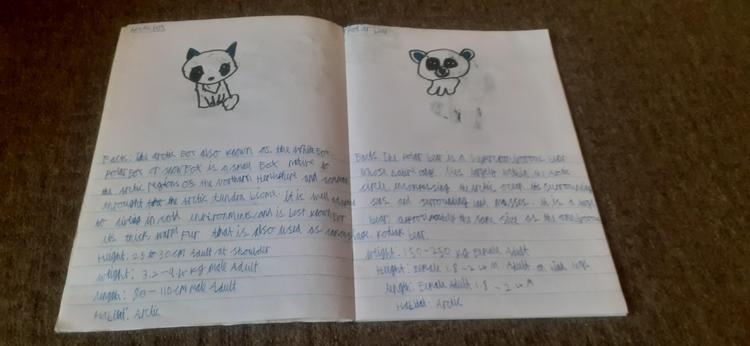 Arctic Fox
Facts: The arctic Fox also known as the white Fox,
Polar Fox or snow Fox is a small Fox native to
the Arctic regions of the Northern Hemisphere and common
throughout the Arctic tundra biome. It is well adapted
to living in cold environments, and is best known for
its thick, warm Fur that is also used as camouflage.
Height: 25 to 30 cm adult at shoulder
weight: 3.2 - kg male adult
length: 80 - 110 cm male Adult
Habitat: Arctic
Polar bear
Facts: The Polar bear is a bear
whose native range lies largely within the arctic
circle encompassing the arctic ocean its surrounding
seas and surrounding land masses. It is a large
bear, approximately the same size as the omnivorous
Kodiak bear.
weight: 150-250 kg Female Adult
Height: Female 1.8 - 2.4 M Adult on hind legs
length: Female Adult 1.8 - 2.4 M
Habitat: Arctic